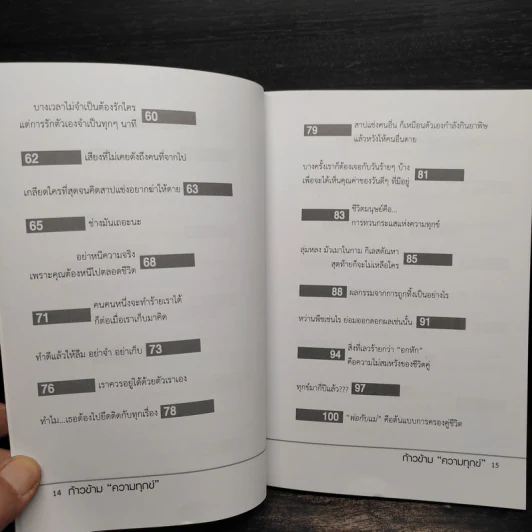 บางเวลาไม่จำเป็นต้องรักใคร
แต่การรักตัวเองจำเป็นทุกๆ นาที 60
62 เสียงที่ไม่เคยดังถึงคนที่จากไป
เกลียดใครที่สุดจนคิดสาปแช่งอยากฆ่าให้ตาย 63
65 ช่างมันเถอะนะ
อย่าหนีความจริง
เพราะคุณต้องหนีไปตลอดชีวิต 68
71 คนคนหนึ่งจะทำร้ายเราได้
ก็ต่อเมื่อเราเก็บมาคิด
ทำดีแล้วให้ลืม อย่าจำ อย่าเก็บ 73
76 เราควรอยู่ได้ด้วยตัวเราเอง
ทำไม...เธอต้องไปยึดติดกับทุกเรื่อง 78
14 ก้าวข้าม “ความทุกข์”
79 สาปแช่งคนอื่น ก็เหมือนตัวเองกำลังกินยาพิษ
แล้วหวังให้คนอื่นตาย
บางครั้งเราก็ต้องเจอกับวันร้ายๆ บ้าง
เพื่อจะได้เห็นคุณค่าของวันดีๆ ที่มีอยู่ 81
83 ชีวิตมนุษย์คือ...
การทวนกระแสแห่งความทุกข์
ลุ่มหลง มัวเมาในกาม กิเลสตัณหา
สุดท้ายก็จะไม่เหลือใคร 85
88 ผลกรรมจากการถูกทิ้งเป็นอย่างไร
หว่านพืชเช่นไร ย่อมออกดอกผลเช่นนั้น 91
94 สิ่งที่เลวร้ายกว่า “อกหัก”
คือความไม่สมหวังของชีวิตคู่
ทุกข์มากี่ปีแล้ว??? 97
100 “พ่อกับแม่” คือต้นแบบการครองคู่ชีวิต
ก้าวข้าม “ความทุกข์” 15